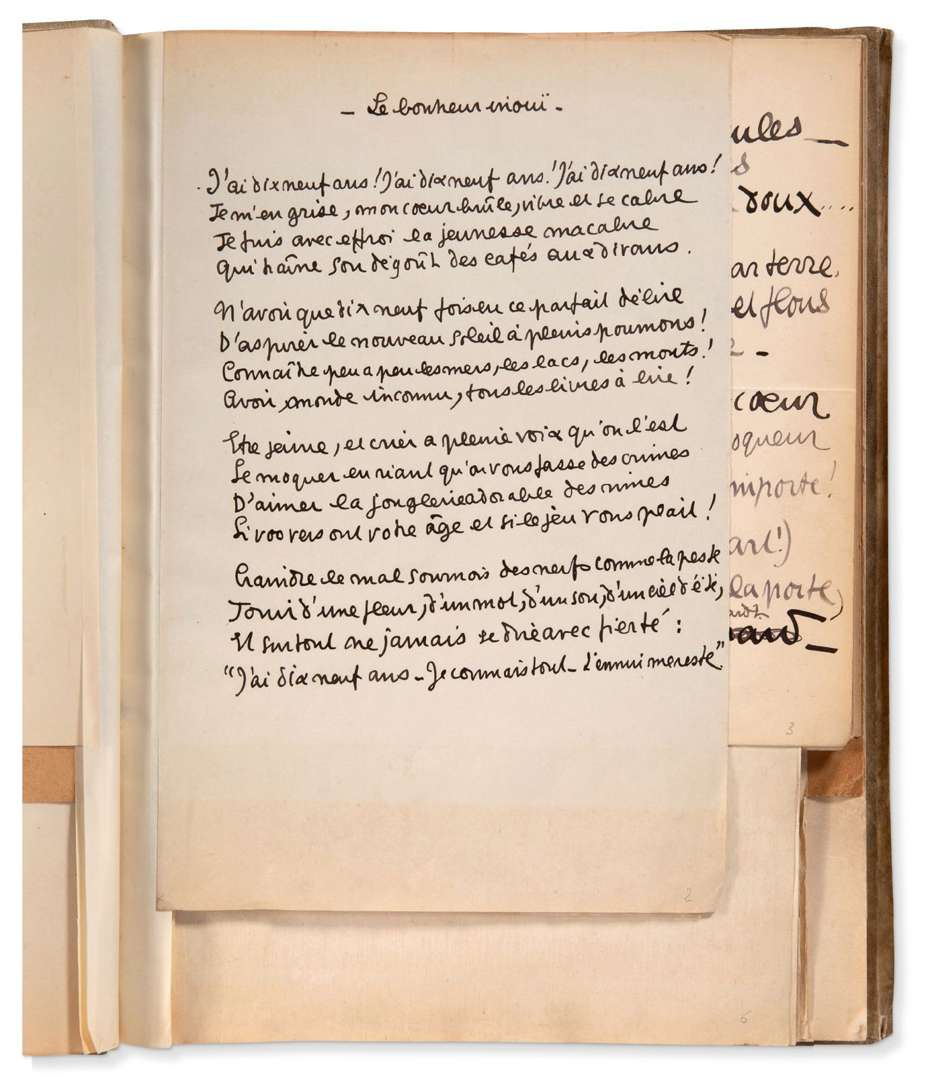 - Le bonheur inouï -
J'ai dix neuf ans! J'ai dix neuf ans! J'ai dix neuf ans!
Je m'en grise, mon cœur brûle, vibre et se cabre
Je fuis avec effroi la jeunesse macabre
Qui traîne son dégoût des cafés aux divans.
N'avoir que dix neuf fois en ce parfait délire
D'aspirer le nouveau soleil à pleins poumons!
Connaître peu a peu les mers, les lacs, les monts!
Avoir, monde inconnu, tous les livres à lire!
Etre jeune, et crier a pleine voix qu'on l'est
Se moquer en riant qu'on vous fasse des crimes
D'aimer la jonglerie adorable des rimes
Si vos vers ont votre âge et si le jeu vous plait!
Craindre le mal sournois des nerfs comme la peste
Jouir d'une fleur, d'un mot, d'un son, d'un ciel d'été,
Et surtout ne jamais se dire avec fierté:
"J'ai dix neuf ans - Je connais tout - L'ennui me reste"
2
ules -
s
doux....
ar terre.
et flous
-
cœur
oqueur
importe!
art!)
la porte,
3
6